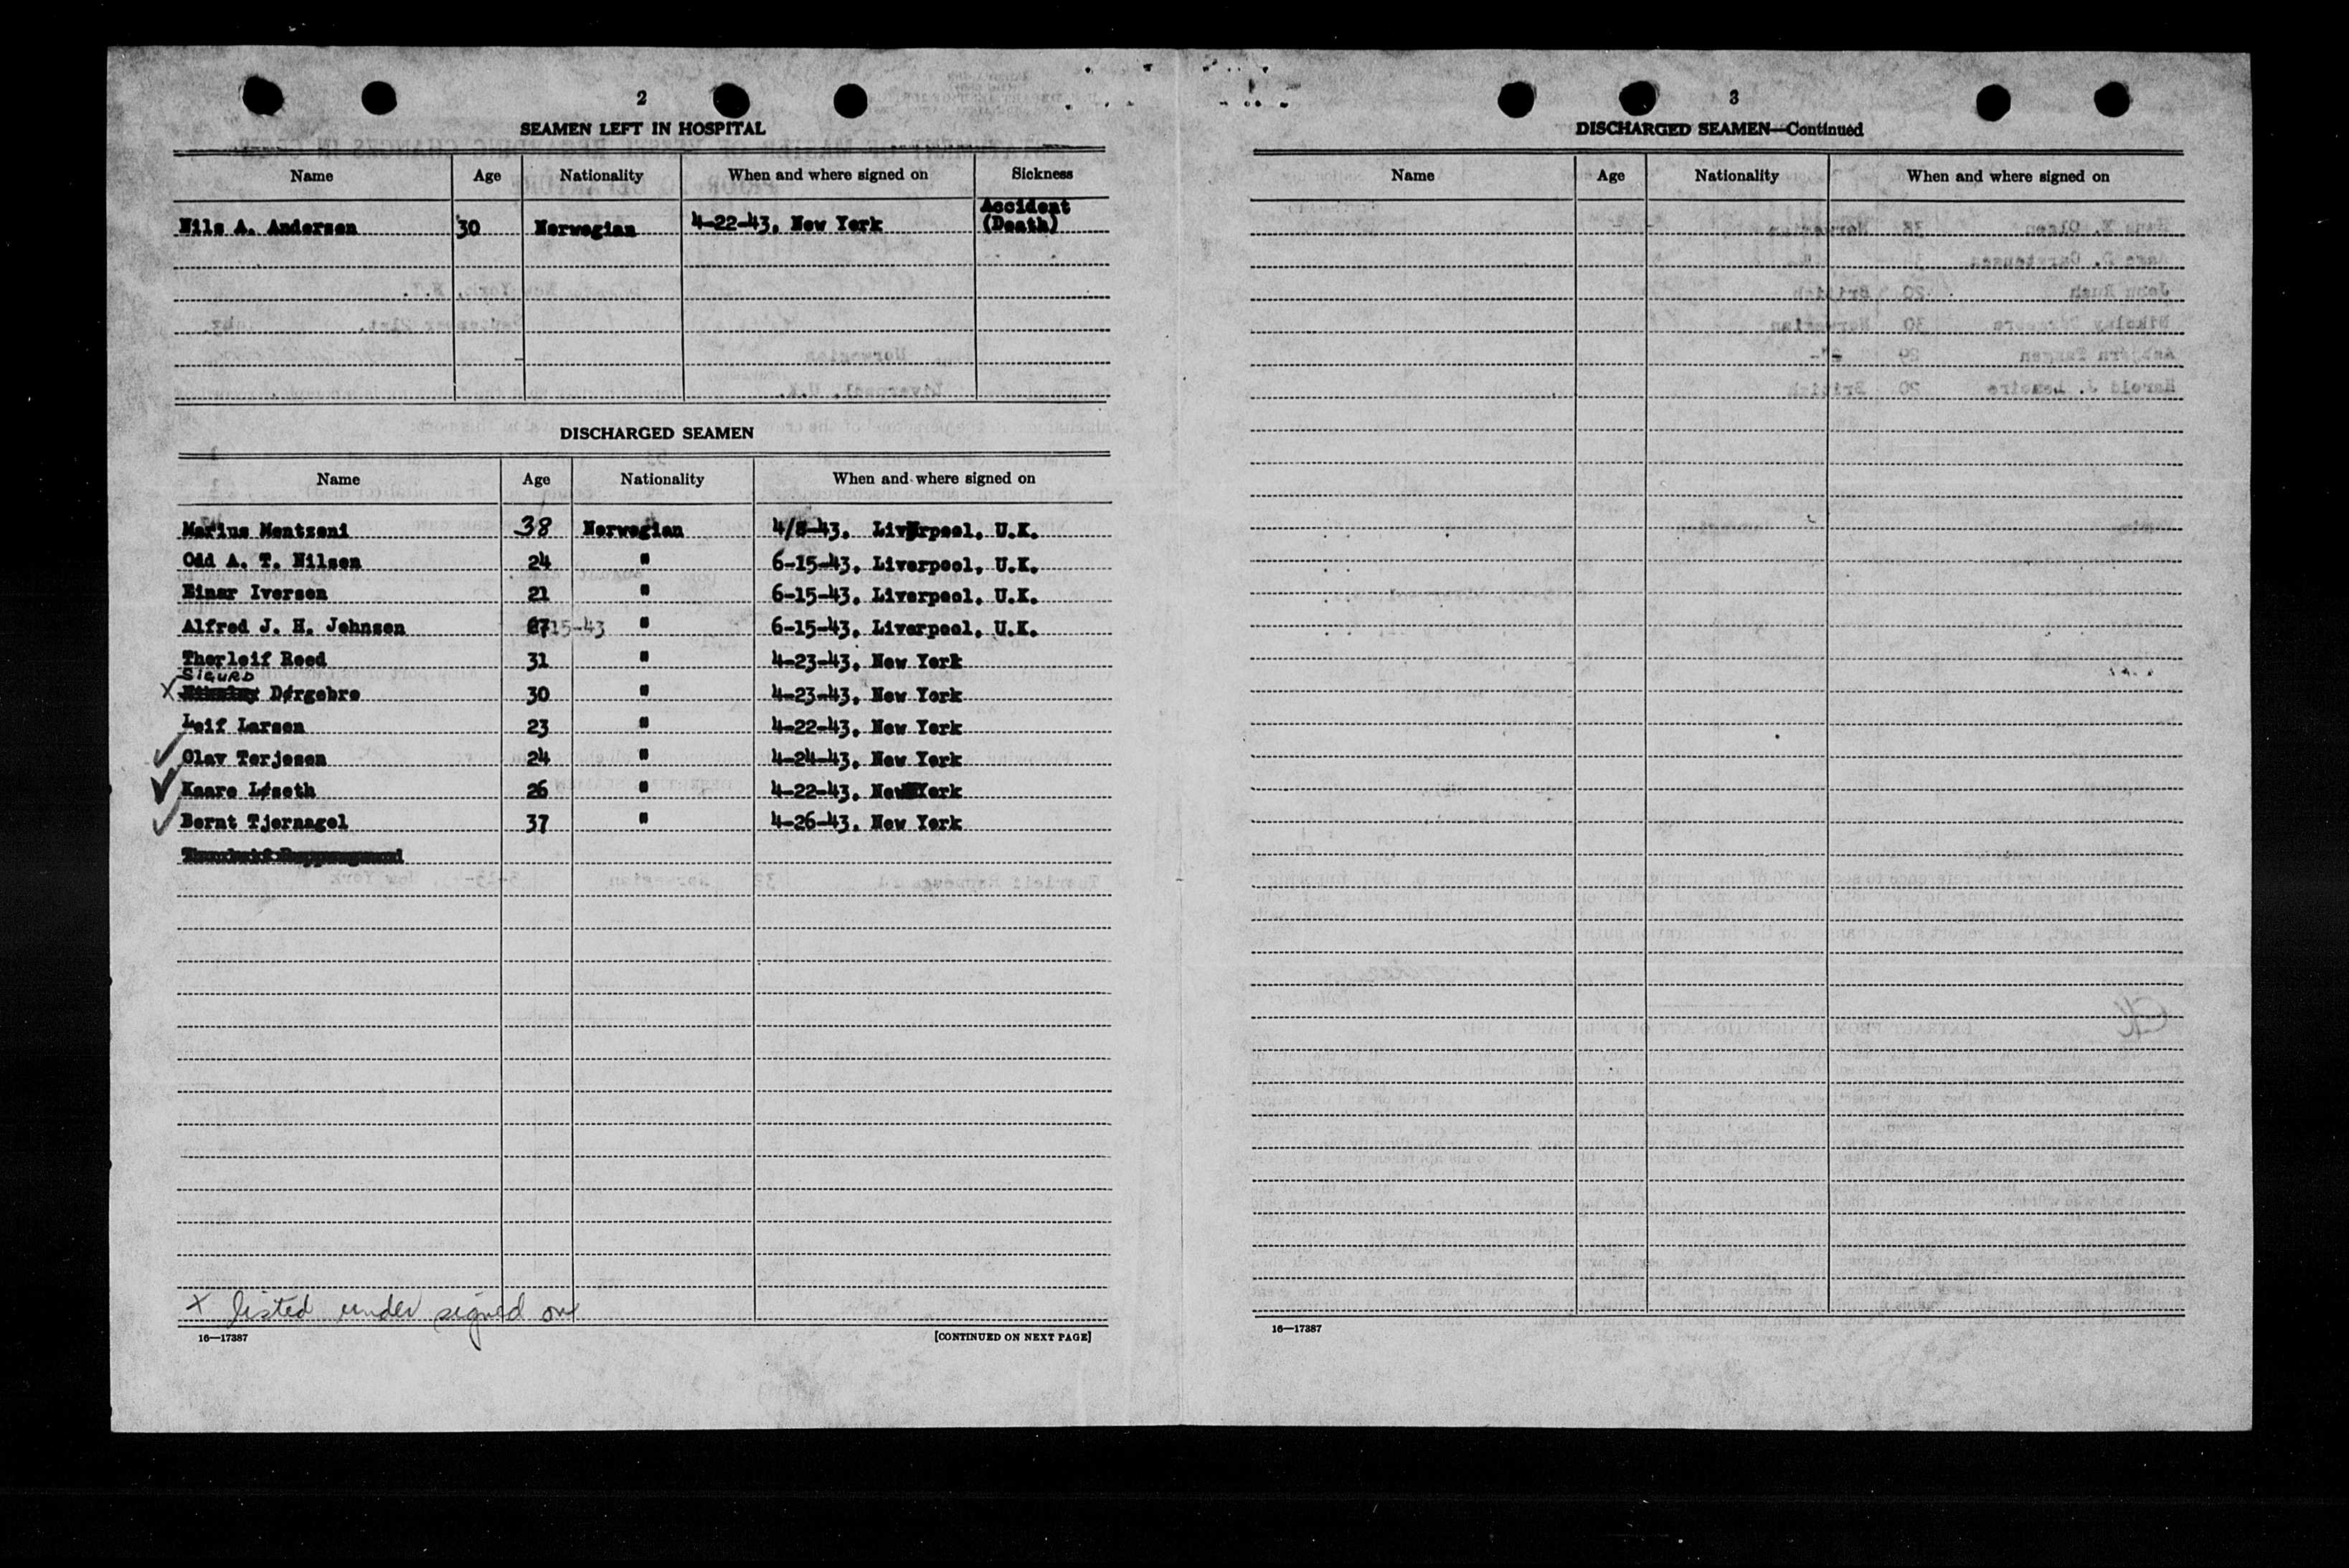 2
SEAMEN LEFT IN HOSPITAL
Name Age Nationality When and where signed on Sickness
Nils A. Andersen 30 Norwegian 4-22-43, New York Accident (Death)
DISCHARGED SEAMEN
Name Age Nationality When and where signed on
Marius Mentzoni 38 Norwegian 4/8-43, Liverpool, U.K.
Odd A. T. Nilsen 24 " 6-15-43, Liverpool, U.K.
Einar Iversen 21 " 6-15-43, Liverpool, U.K.
Alfred J. H. Johnsen 15-43 " 6-15-43, Liverpool, U.K.
Thorleif Roed 31 " 4-23-43, New York
SIGURD
X Dørgebre 30 " 4-23-43, New York
Leif Larsen 23 " 4-22-43, New York
✓ Olav Terjesen 24 " 4-24-43, New York
✓ Kaare Løseth 26 " 4-22-43, New York
✓ Bernt Tjernagel 37 " 4-26-43, New York
x listed under signed on
16—17387 [CONTINUED ON NEXT PAGE]
3
DISCHARGED SEAMEN—Continued
Name Age Nationality When and where signed on
16—17387